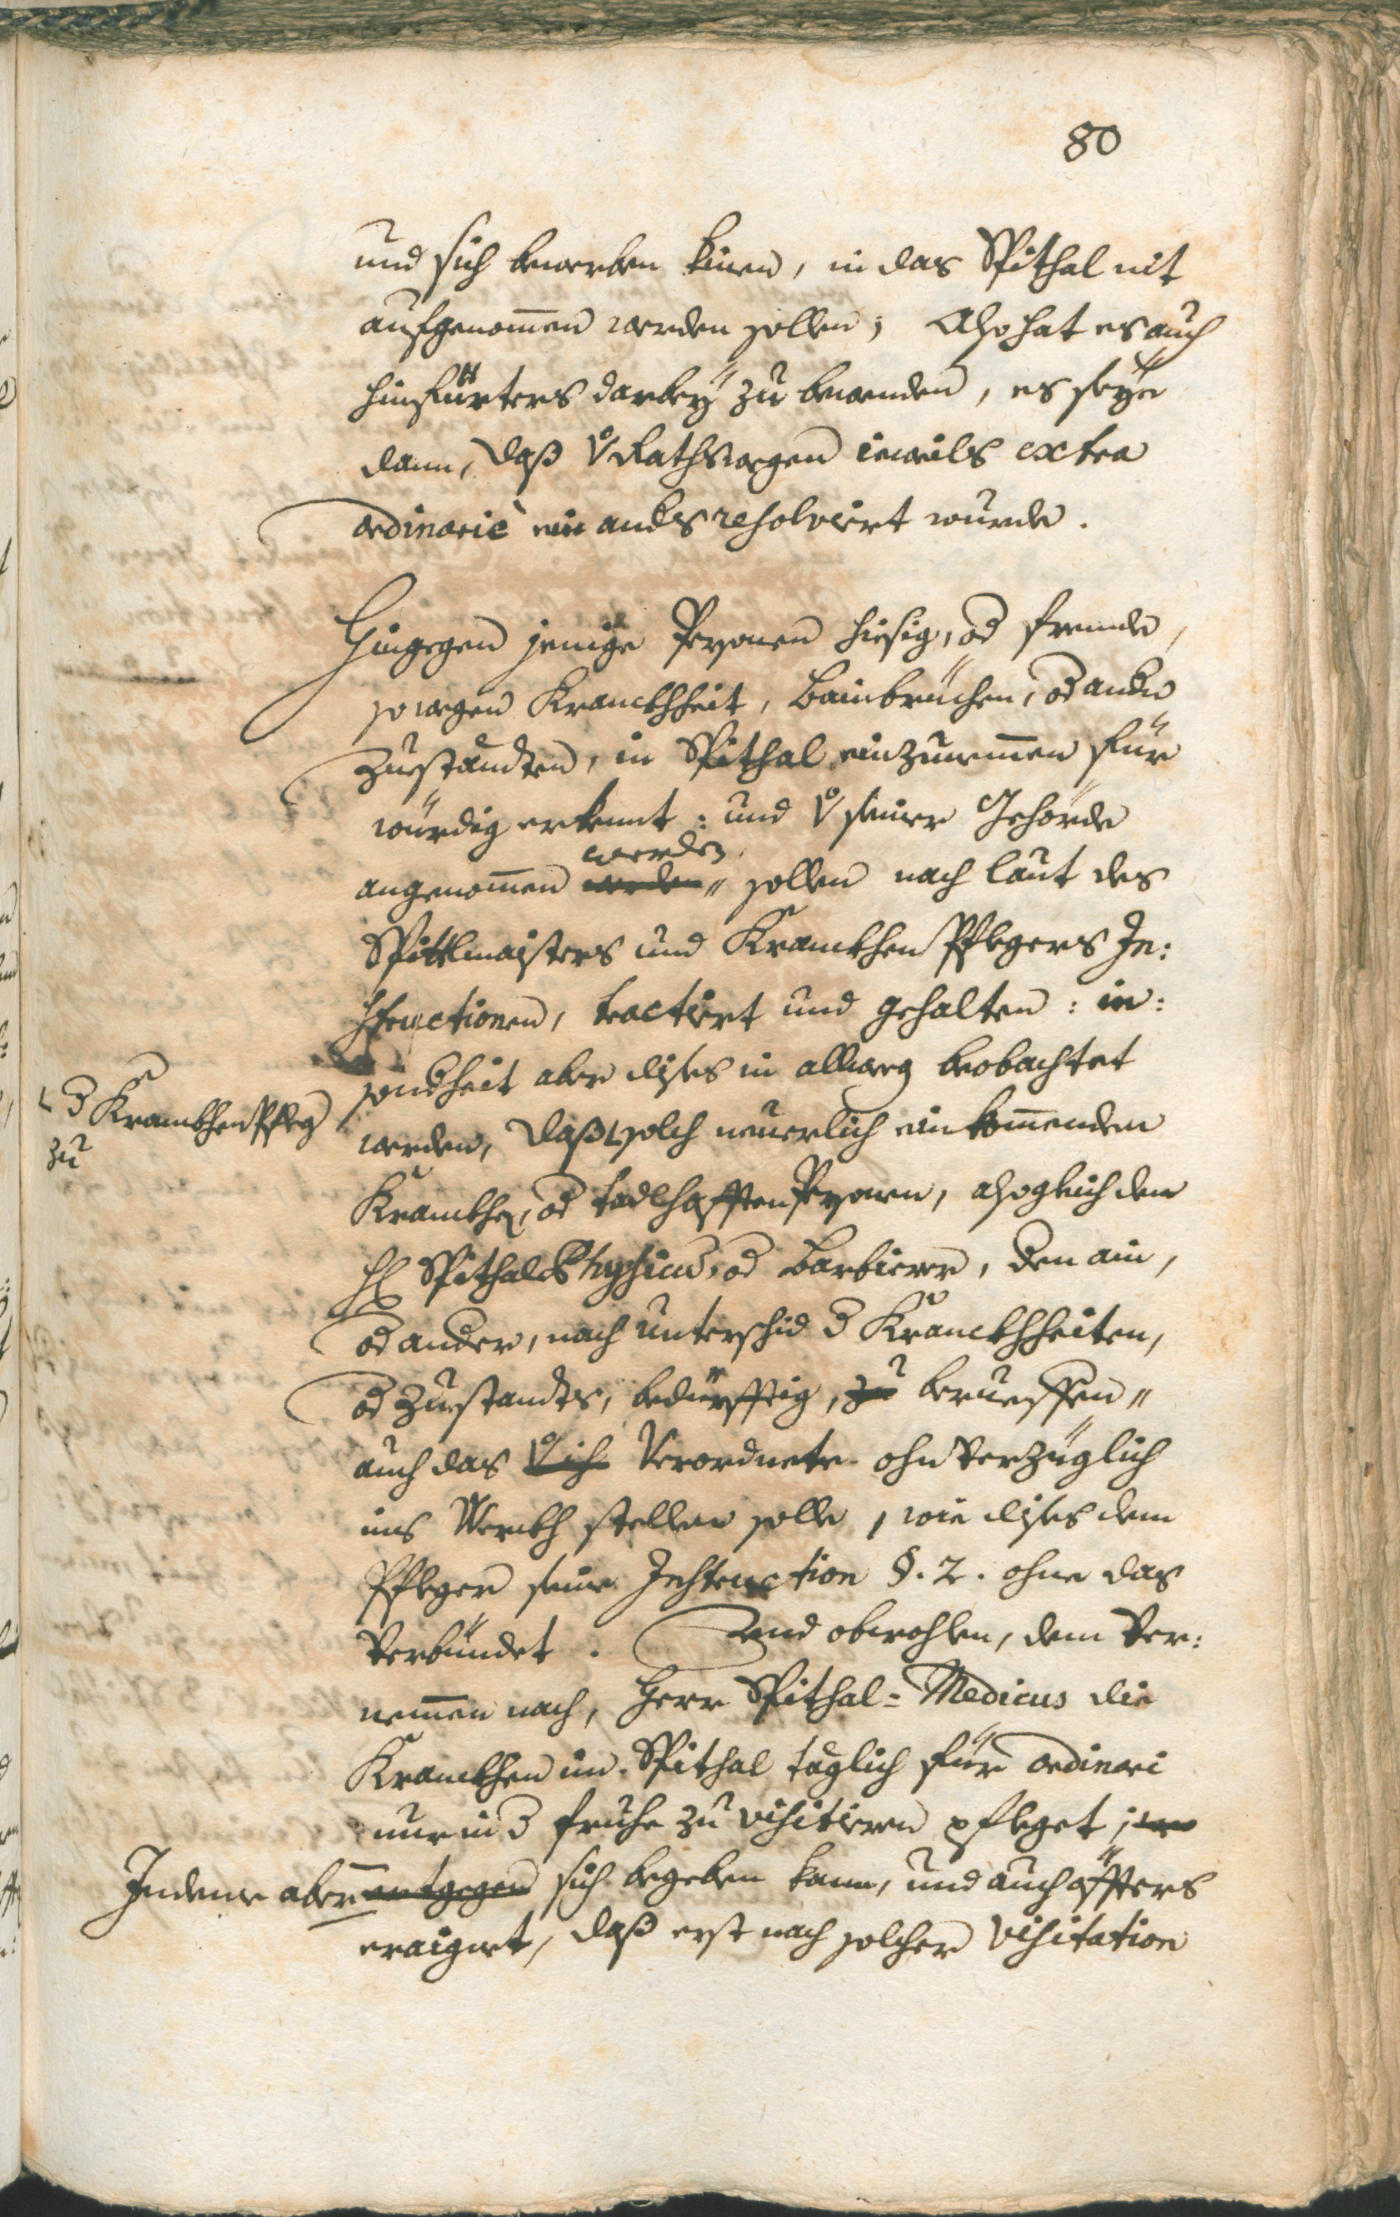 80
und sich bewerben kinen, in das Spithal nit
aufgenom̄en werden sollen; Also hat es auch
hinfürters darbeÿ zu bewenden, es seÿe
dann, daß v Rathswegen ieweils extra
ordinariè ein and̄s resolviert wurde.
Hingegen jenige Persohnen hiesig, od fremde,
so wegen Kranckhheit, Bainbrüchen, od and̄n
Zueständen, in Spithal einzunem̄en für
würdig erkennt: und v seiner Gehörde
werden
angenom̄en werden„ sollen nach laut des
Spittlmaisters und Kranckhen Pflegers In:
structionen, tractiert und gehalten: in:
sond̄heit aber dises in allweg beobachtet
werden, daß solch neuerlich einkom̄enden
d Kranckhen Pfleg
zu
Kranckhen, od tadlhafften Persohnen, alsogleich den
H Spithal Physicum, od Barbierer, den ain,
od ander, nach unterschid d Kranckhheiten,
od Zuestandts, bedürfftig, zu berueffen„
auch das v ih Verordnete ohnverzüglich
ins Werckh stellen solle, wie dises dem
Pfleger seine Instruction §. 2. ohne das
verbündet. Und obwohlen, dem Ver:
nem̄en nach, Herr Spithal=Medicus die
Kranckhen im Spithal täglich für ordinari
nur in d fruhe zu visitieren pfleget;
Indeme aber entgegen sich begeben kann, und auch öffters
eraignet, daß erst nach solcher visitation